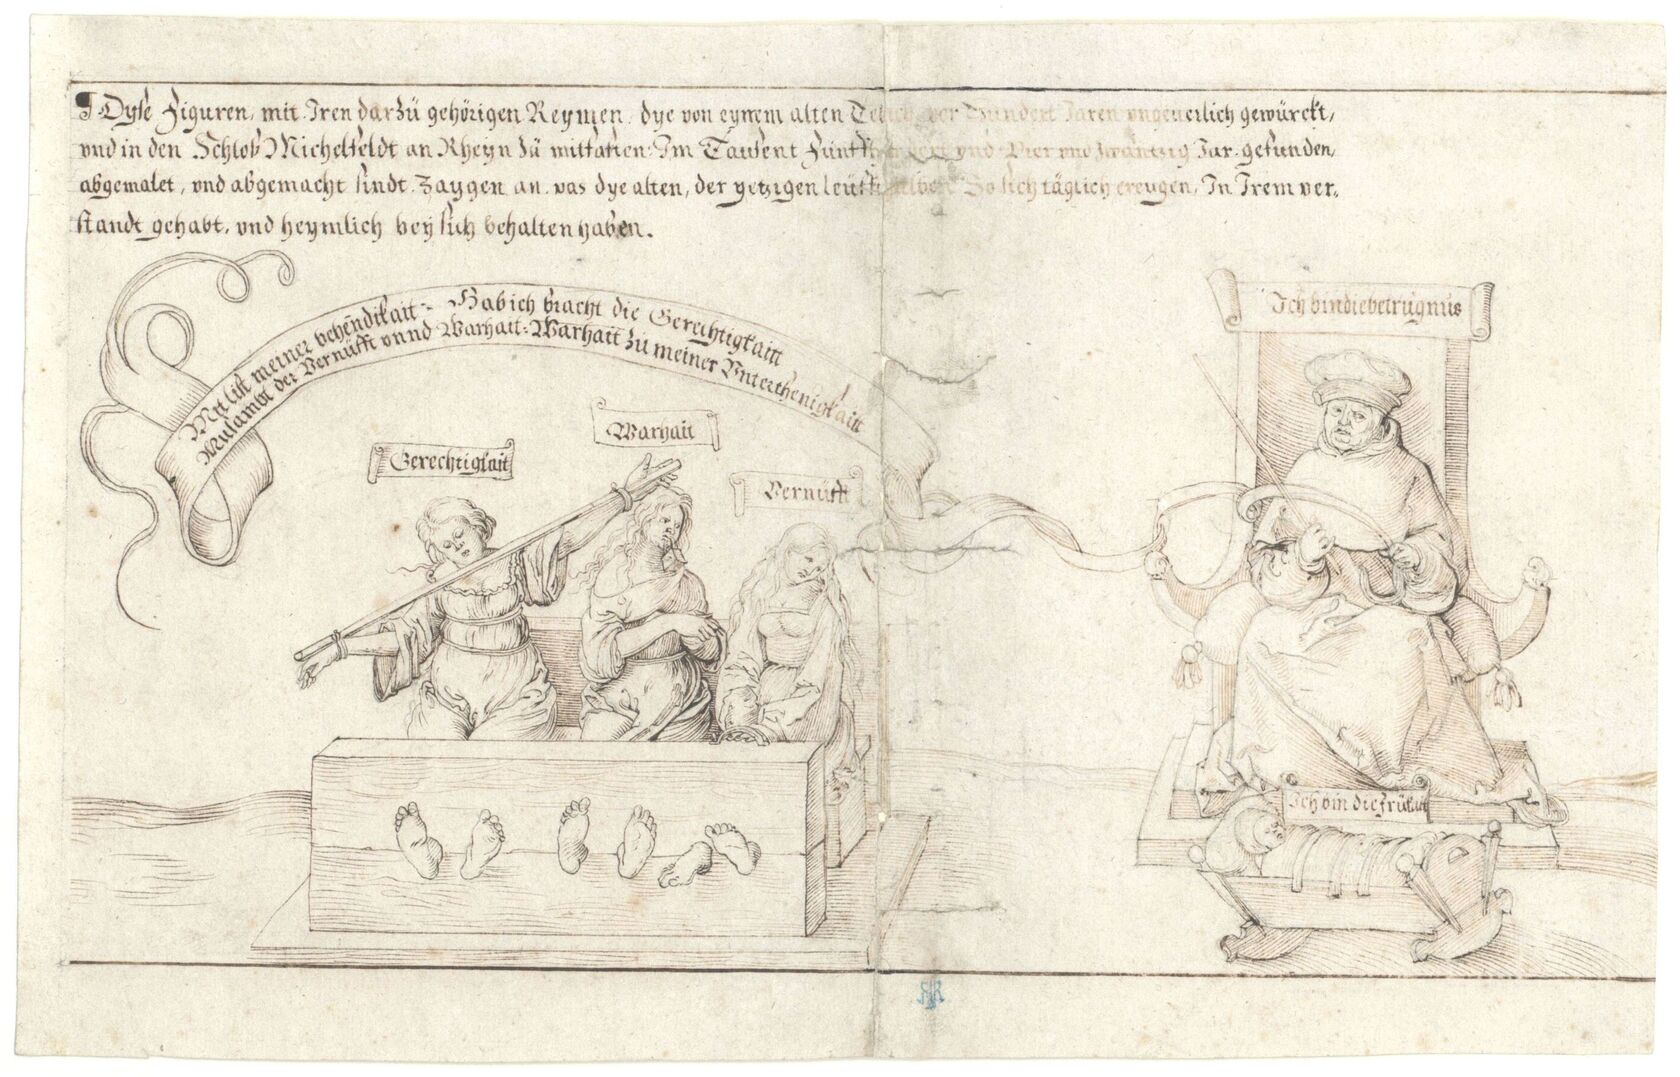 Dyse Figuren, mit Iren darzü gehörigen Reymen, dye von eynem alten Tebich vor Hundert Jaren vngeuerlich gewürckt,
vnd in den Schloß Michelfeldt an Rheyn zü mitfasten Im Tausent Fünffhundert vnd Vier vnd zwäntzig Jar gefunden,
abgemalet, vnd abgemacht sindt. Zaygen an was dye alten, der yetzigen leüff halben So sich täglich ereugen, In Irem ver,
standt gehabt, vnd heymlich bey sich behalten haben.
Mit list meiner behendikait Hab ich bracht die Gerechtigkaitt
Mitsambt der Vernüfft vnnd Warhait zü meiner Vnterthenigkaitt
Gerechtigkait
Warhait
Vernüfft
Ich bin die betrugnus
Ich bin die